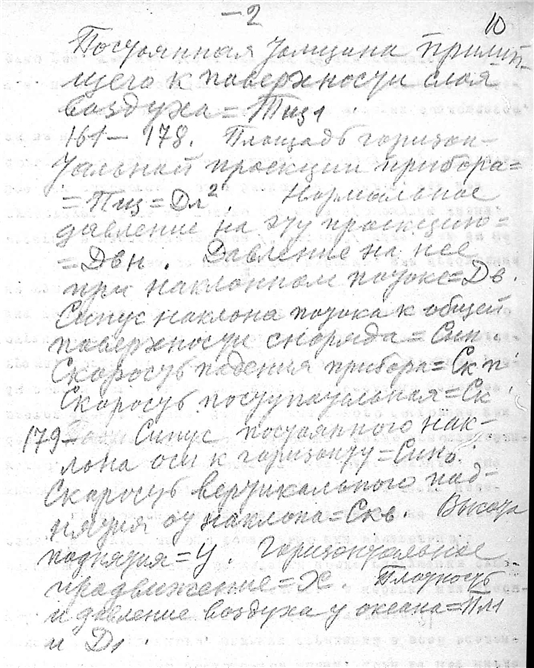 -2
10
Постоянная толщина прилип-
шего к поверхности слоя
воздуха = Тпз1
161 – 178. Площадь горизон-
тальной проекции прибора =
= Ппз = Дл². Нормальное
давление на эту проекцию =
= Двн. Давление на нее
при наклонном потоке = Дв.
Синус наклона потока к общей
поверхности снаряда = Син.
Скорость падения прибора = Скп.
Скорость поступательная = Ск
179 – Синус постоянного нак-
лона оси к горизонту = Сино.
Скорость вертикального под-
нятия от наклона = Скв Высота
поднятия = У. Горизонтальное
продвижение = Х. Плотность
и давление воздуха у океана = Пл1
и Д1.